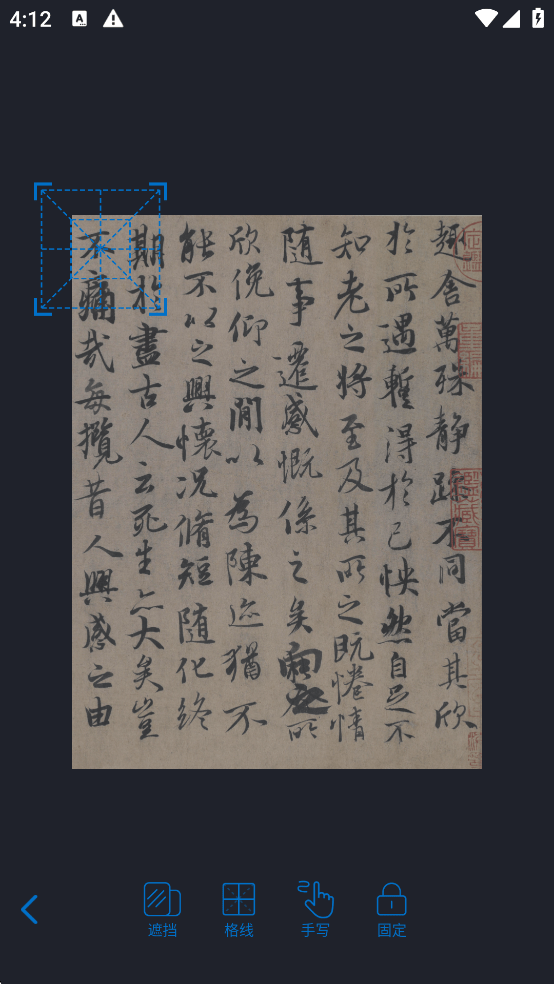 4:12
趣舍萬殊静躁不同當其欣
於所遇蹔得於己怏然自足不
知老之將至及其所之既惓情
随事遷感慨係之矣向之所
欣俛仰之閒以為陳迹猶不
能不以之興懷况脩短随化終
期於盡古人云死生亦大矣豈
不痛哉每攬昔人興感之由
遮挡 格线 手写 固定